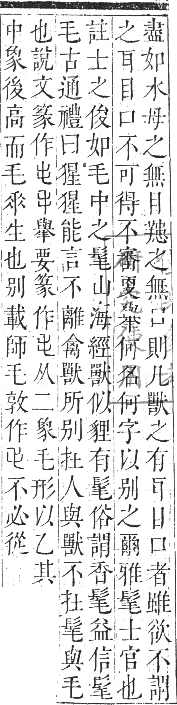 盡如水母之無目䍺之無口則凡獸之有耳目口者雖欲不謂
之耳目口不可得不審夏桀何名何字以别之爾雅髦士官也
註士之俊如毛中之髦山海經獸似狸有髦俗謂香髦益信髦
毛古通禮曰猩猩能言不離禽獸所别在人與獸不在髦與毛
也說文篆作𡳿舉要篆作从二象毛形以乙其
中象後高而毛氶生也别載師毛敦作不必從